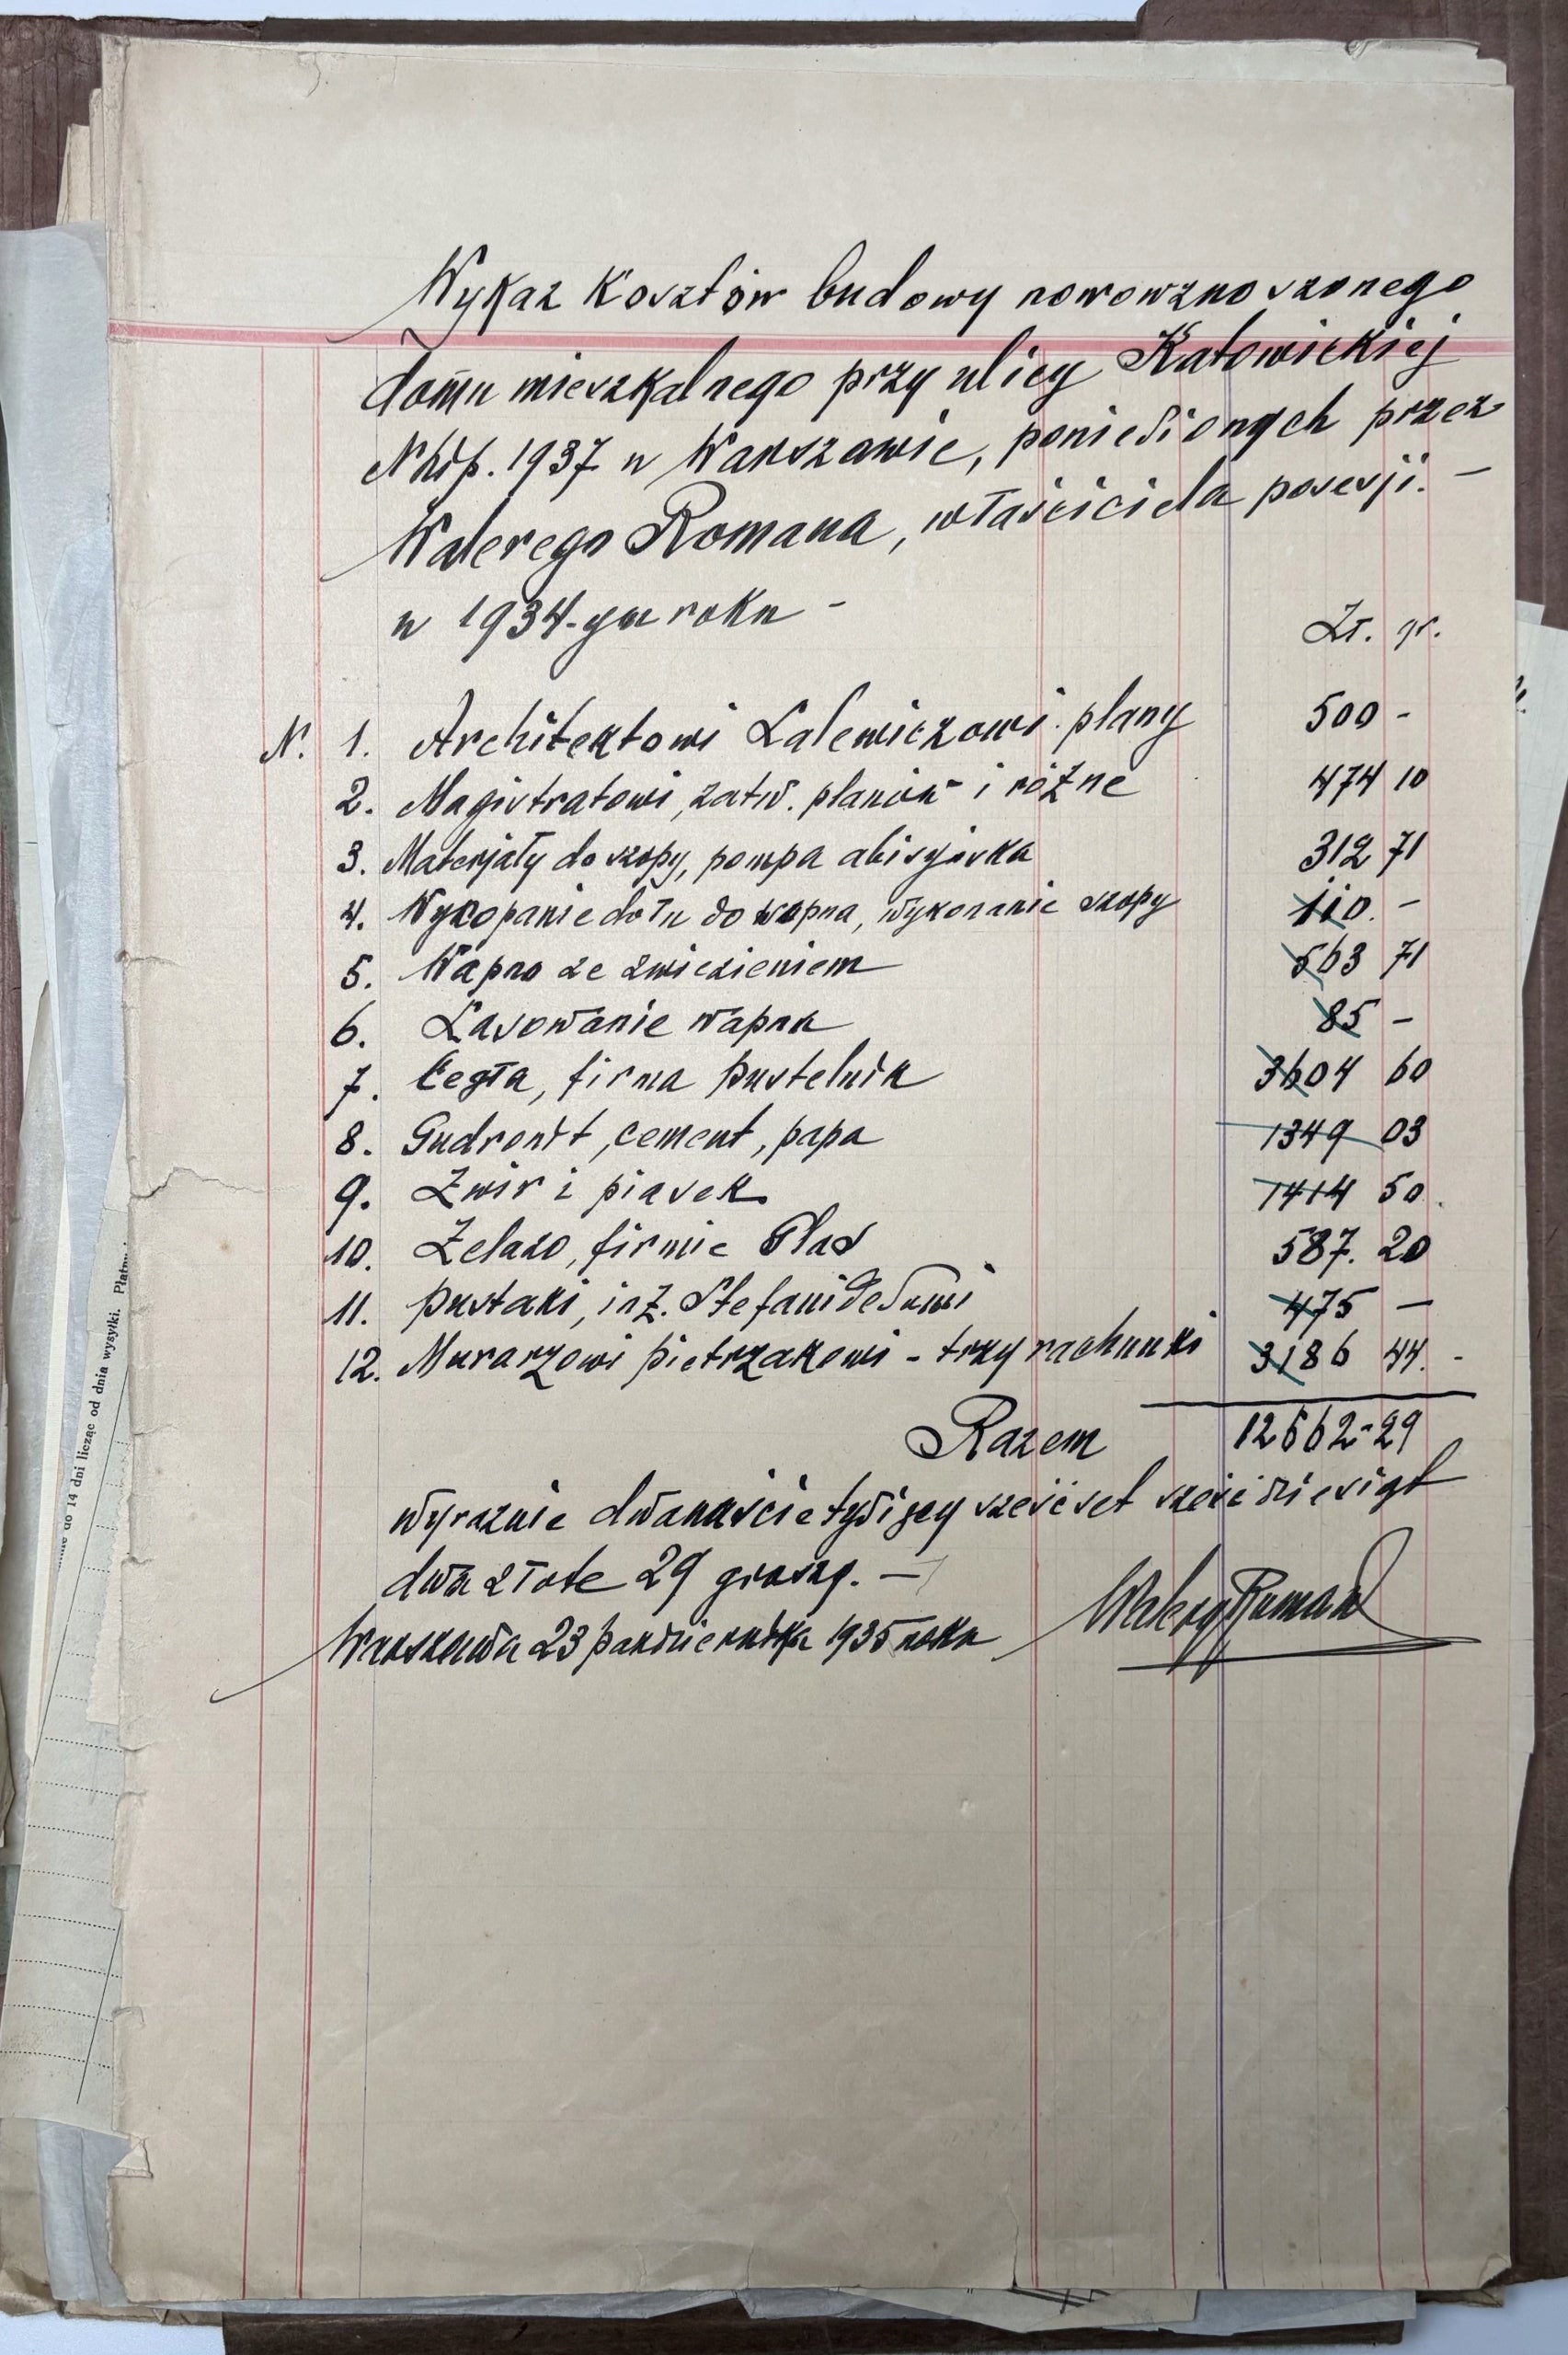 Wykaz kosztów budowy nowowznoszonego
domu mieszkalnego przy ulicy Katowickiej
N hip. 1937 w Warszawie, poniesionych przez
Walerego Romana, właściciela posesji. –
w 1934-ym roku –
Zł. gr.
N. 1. Architektowi Lalewiczowi plany 500 -
2. Magistratowi, zatw. planów i różne 474 10
3. Materjały do szopy, pompa abisyńska 312 71
4. Wykopanie dołu do wapna, wykonanie szopy 110. –
5. Wapno ze zwiezieniem 563 71
6. Lasowanie wapna 85 –
7. Cegła, firma Pustelnik 3604 60
8. Gudronit, cement, papa 1349 03
9. Żwir i piasek 1414 50.
10. Żelazo, firmie 587. 20
11. Pustaki, inż. 475 –
12. Murarzowi Pietrzakowi - trzy rachunki 3186 44. -
Razem 12662-29
wyraźnie dwanaście tysięcy sześćset sześćdziesiąt
dwa złote 29 groszy. –
Warszawa 23 Października 1935 roku Walery Roman
mie do 14 dni licząc od dnia wysyłki.